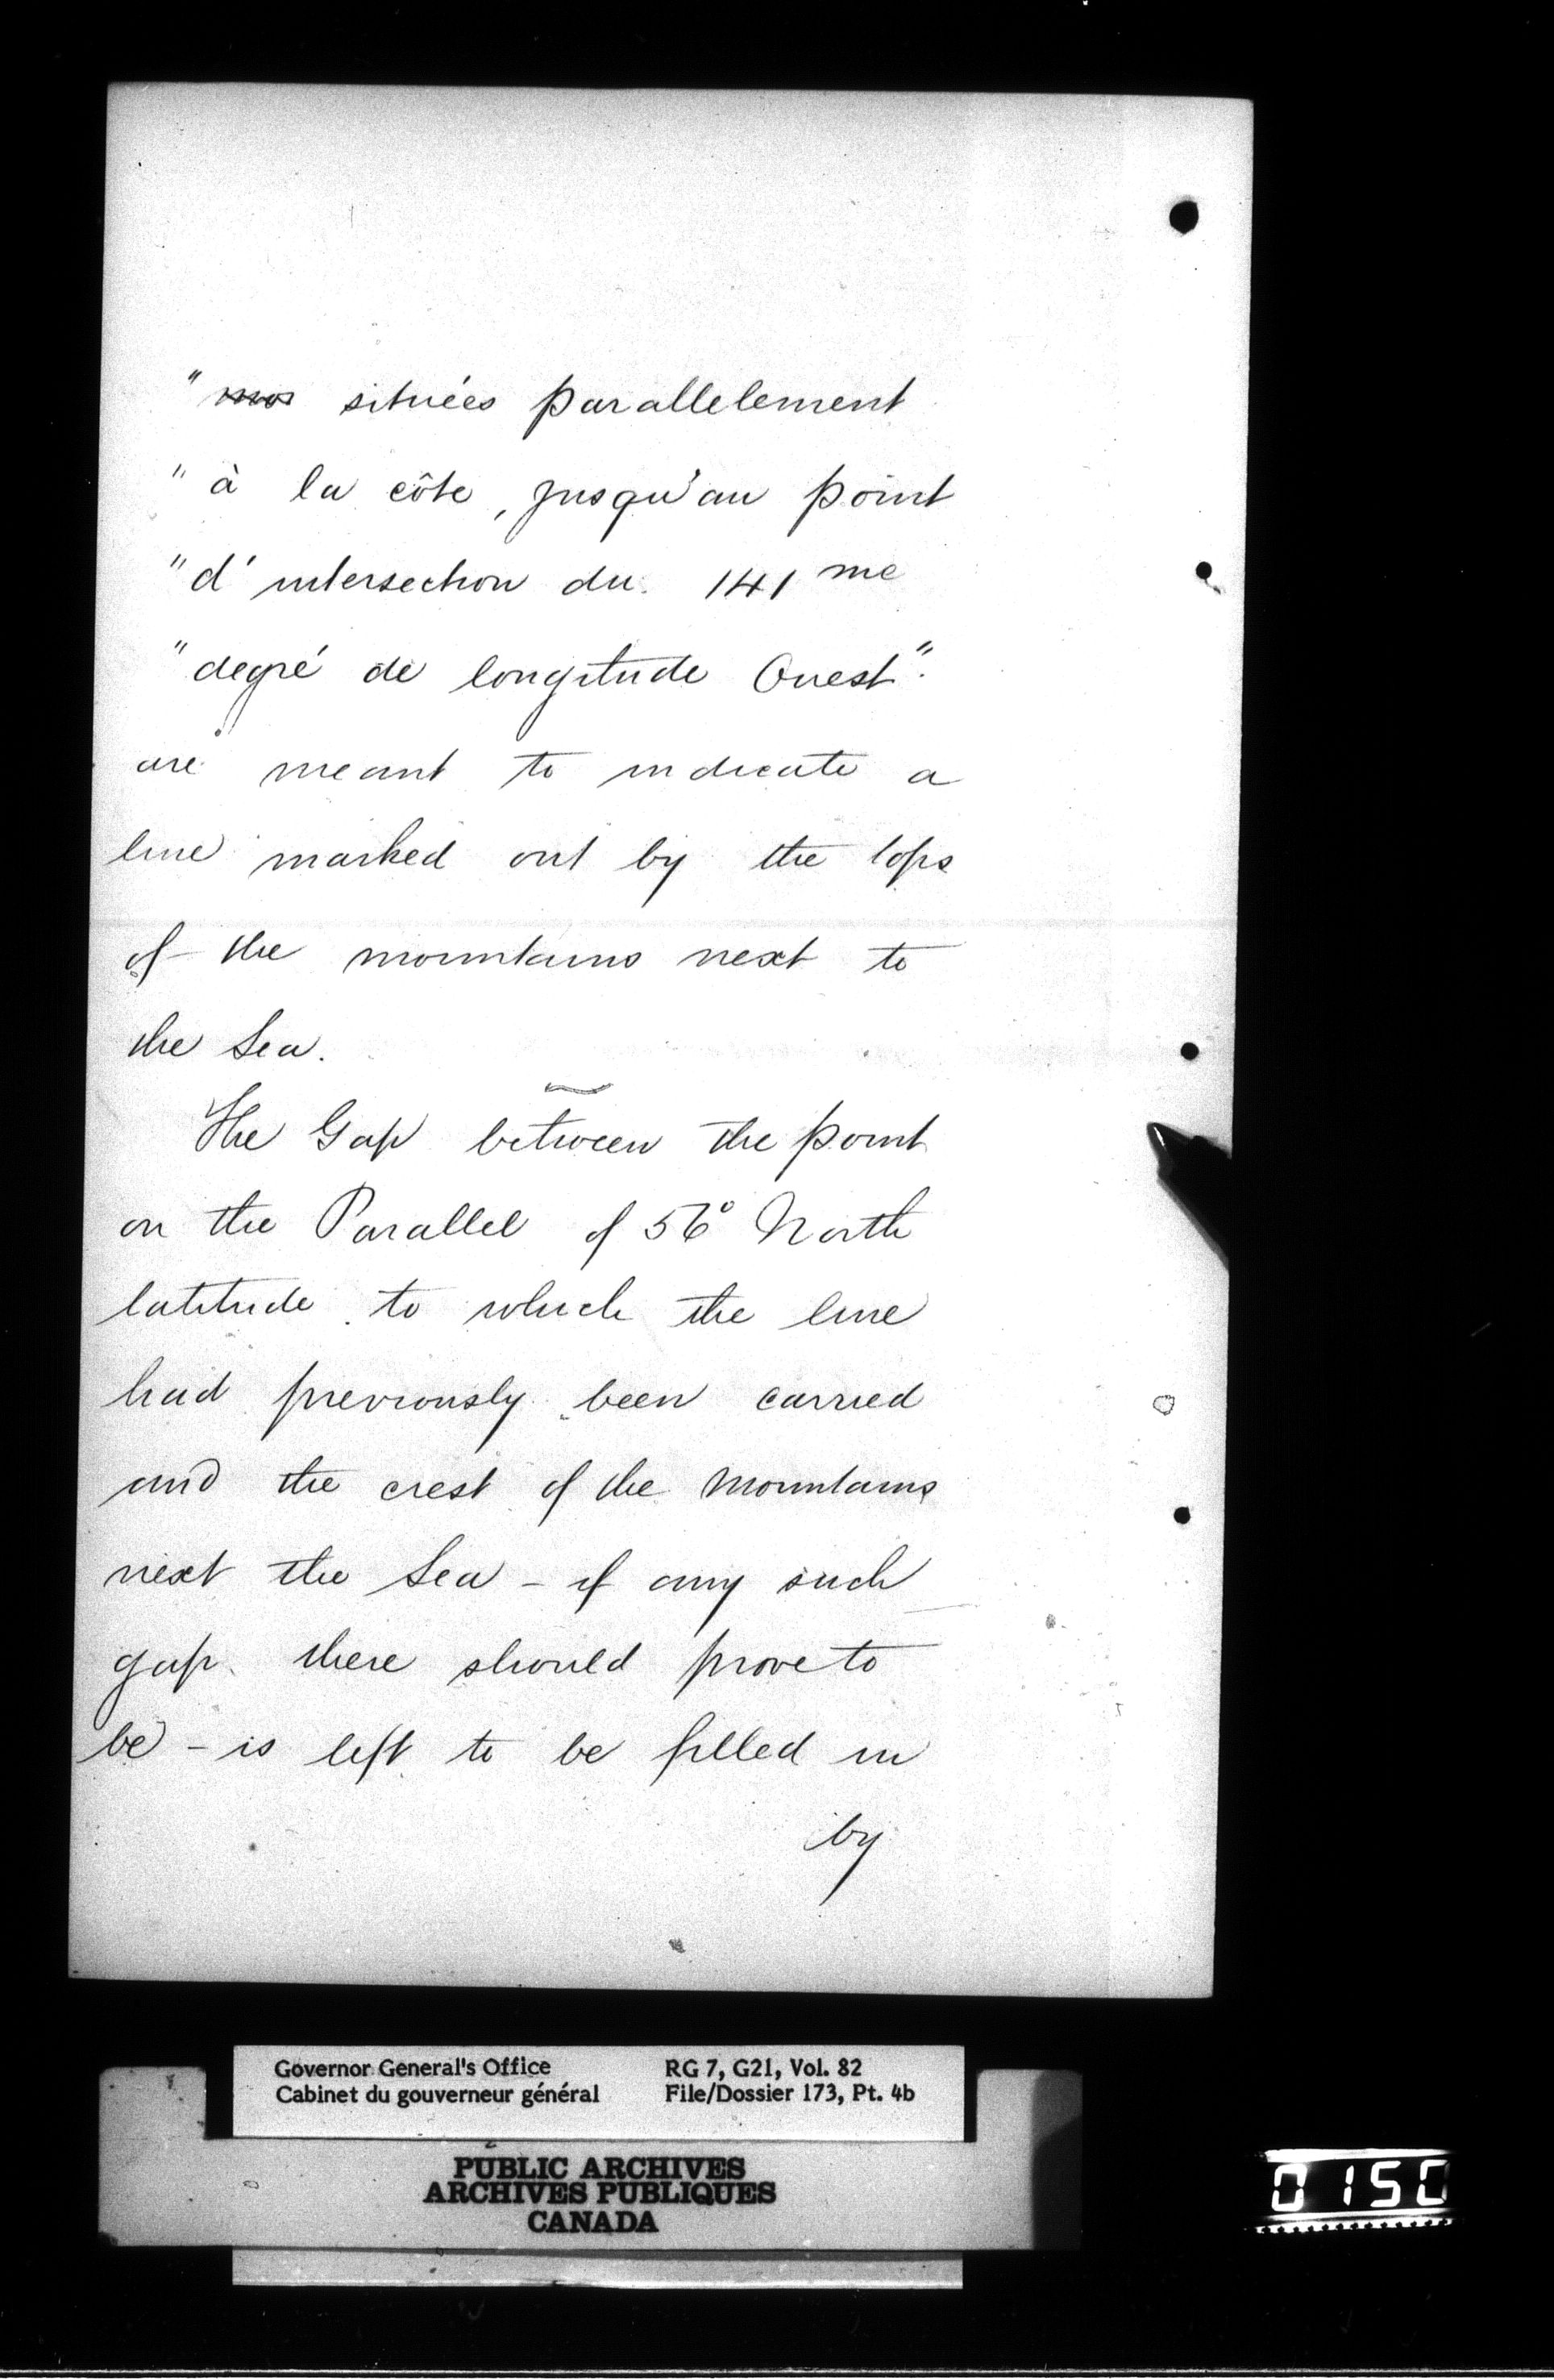 " situées parallelement
" à la côte, jusqu'au point
" d'intersection du 141 me
" degré de longitude Ouest".
are meant to indicate a
line marked out by the tops
of the mountains next to
the Sea.
The Gap between the point
on the Parallel of 56° North
latitude to which the line
had previously been carried
and the crest of the Mountains
next the Sea - if any such
gap there should prove to
be - is left to be filled in
by
Governor General's Office
Cabinet du gouverneur général
RG 7, G21, Vol. 82
File/Dossier 173, Pt. 4b
PUBLIC ARCHIVES
ARCHIVES PUBLIQUES
CANADA
0150